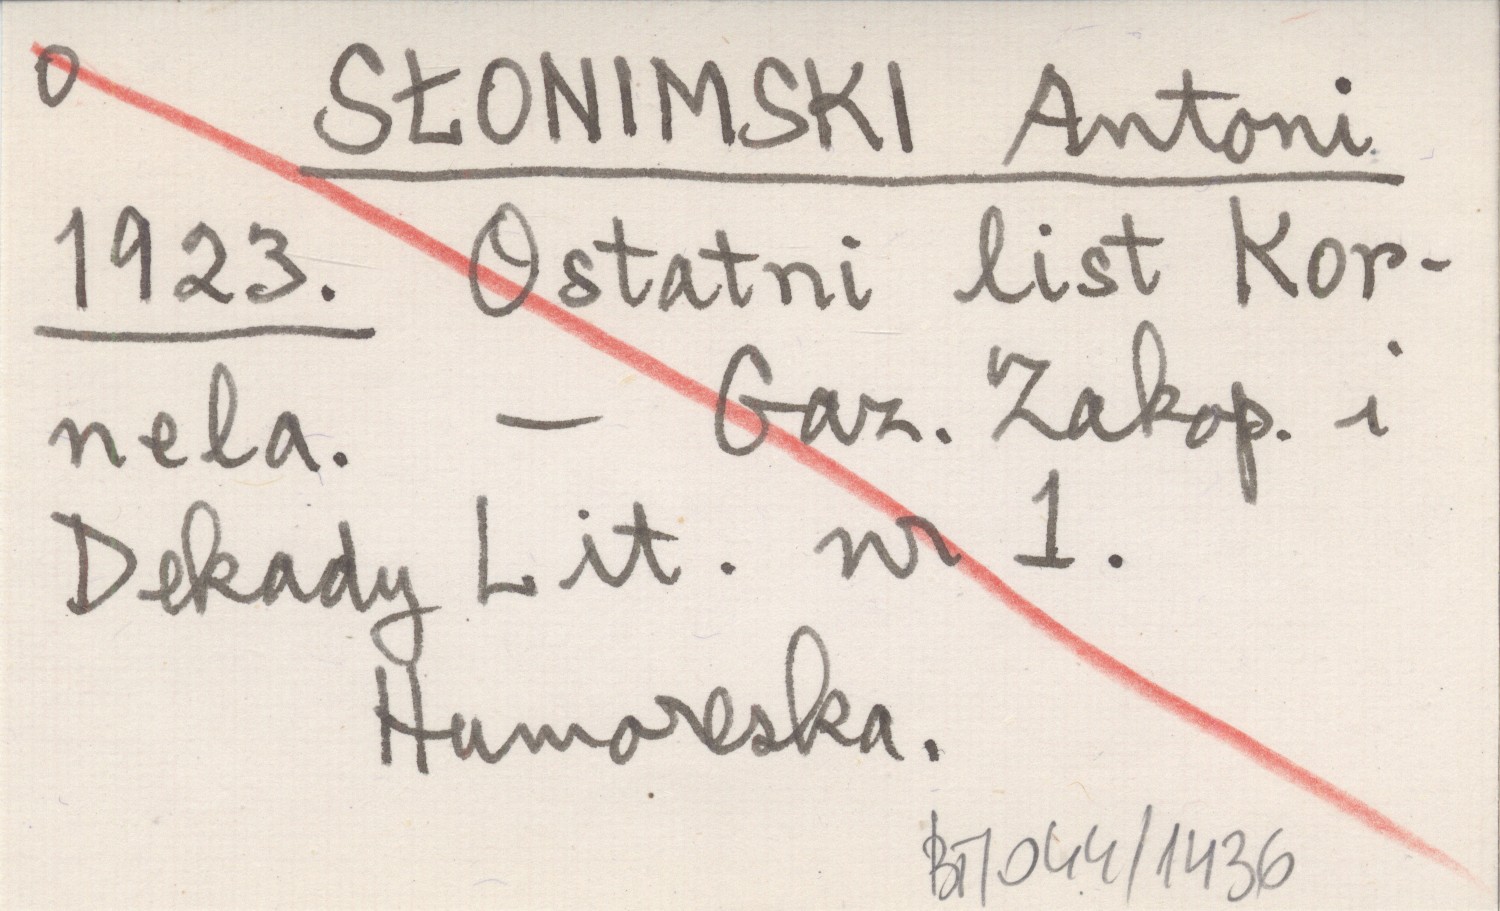 0 SŁONIMSKI Antoni
1923. Ostatni list Kor-
nela. — Gaz. Zakop. i
Dekady Lit. nr 1.
Humoreska.
BT/044/1436